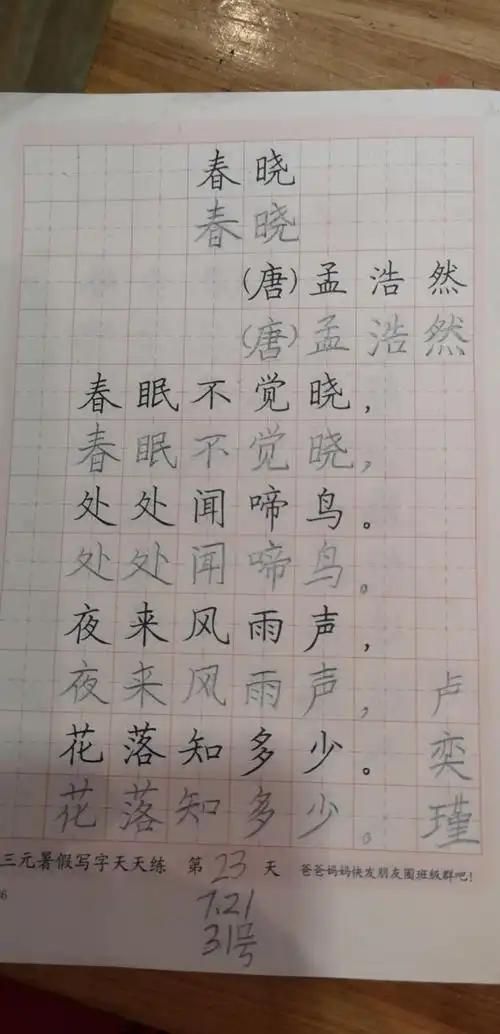 春晓
春晓
(唐)孟浩然
(唐)孟浩然
春眠不觉晓，
春眠不觉晓，
处处闻啼鸟。
处处闻啼鸟。
夜来风雨声，
夜来风雨声，
花落知多少。
花落知多少。
卢奕瑾
三元暑假写字天天练 第23天 爸爸妈妈快发朋友圈班级群吧！
6
7.21
31号